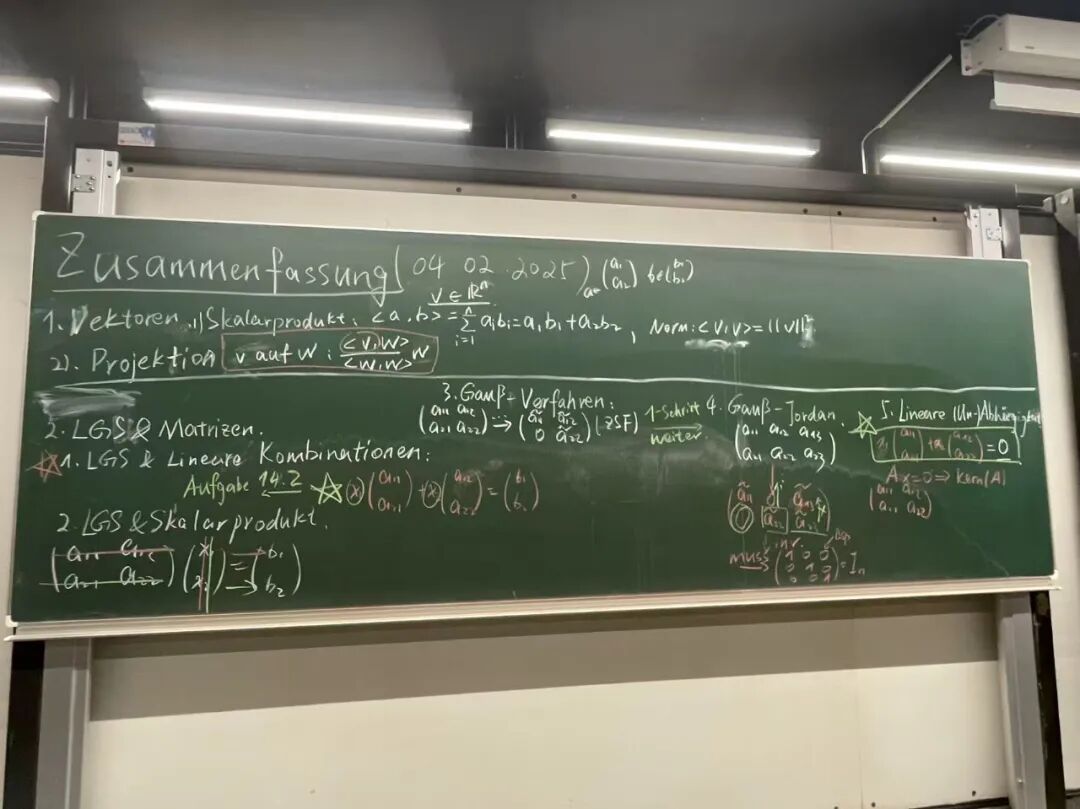 Zusammenfassung (04 02 .2025) a∈(a₁ a₂) b∈(b₁ b₂)
v ∈ ℝⁿ
1. Vektoren ,, Skalarprodukt: <a,b> = ∑ᵢ₌₁ⁿ aᵢbᵢ = a₁b₁ + a₂b₂ , Norm: <v,v> = ||v||²
2). Projektion v auf w : <v,w>/<w,w> w
2. LGS & Matrizen.
1. LGS & Lineare Kombinationen:
Aufgabe 14.2 ☆ (x) (a₁₁ a₂₁) + (x) (a₁₂ a₂₂) = (b₁ b₂)
2. LGS & Skalarprodukt.
(a₁₁ a₁₂
a₂₁ a₂₂) (x₁ x₂) = (b₁ b₂)
3. Gauß-Verfahren:
(a₁₁ a₁₂
a₂₁ a₂₂) ⋯→ (ã₁₁ ã₁₂
0 ã₂₂) (ZSF)
1-Schritt
weiter
4. Gauß-Jordan.
(a₁₁ a₁₂ a₁₃
a₂₁ a₂₂ a₂₃)
(ã₁₁ ã₁₃
0 ã₂₂ ã₂₃)
muss (1 0 0
0 1 0
0 0 1) = Iₙ
5. Lineare (Un-)Abhängigkeit
= 0
Ax=0 ⇒ Kern(A)
(a₁₁ a₁₂
a₂₁ a₂₂)